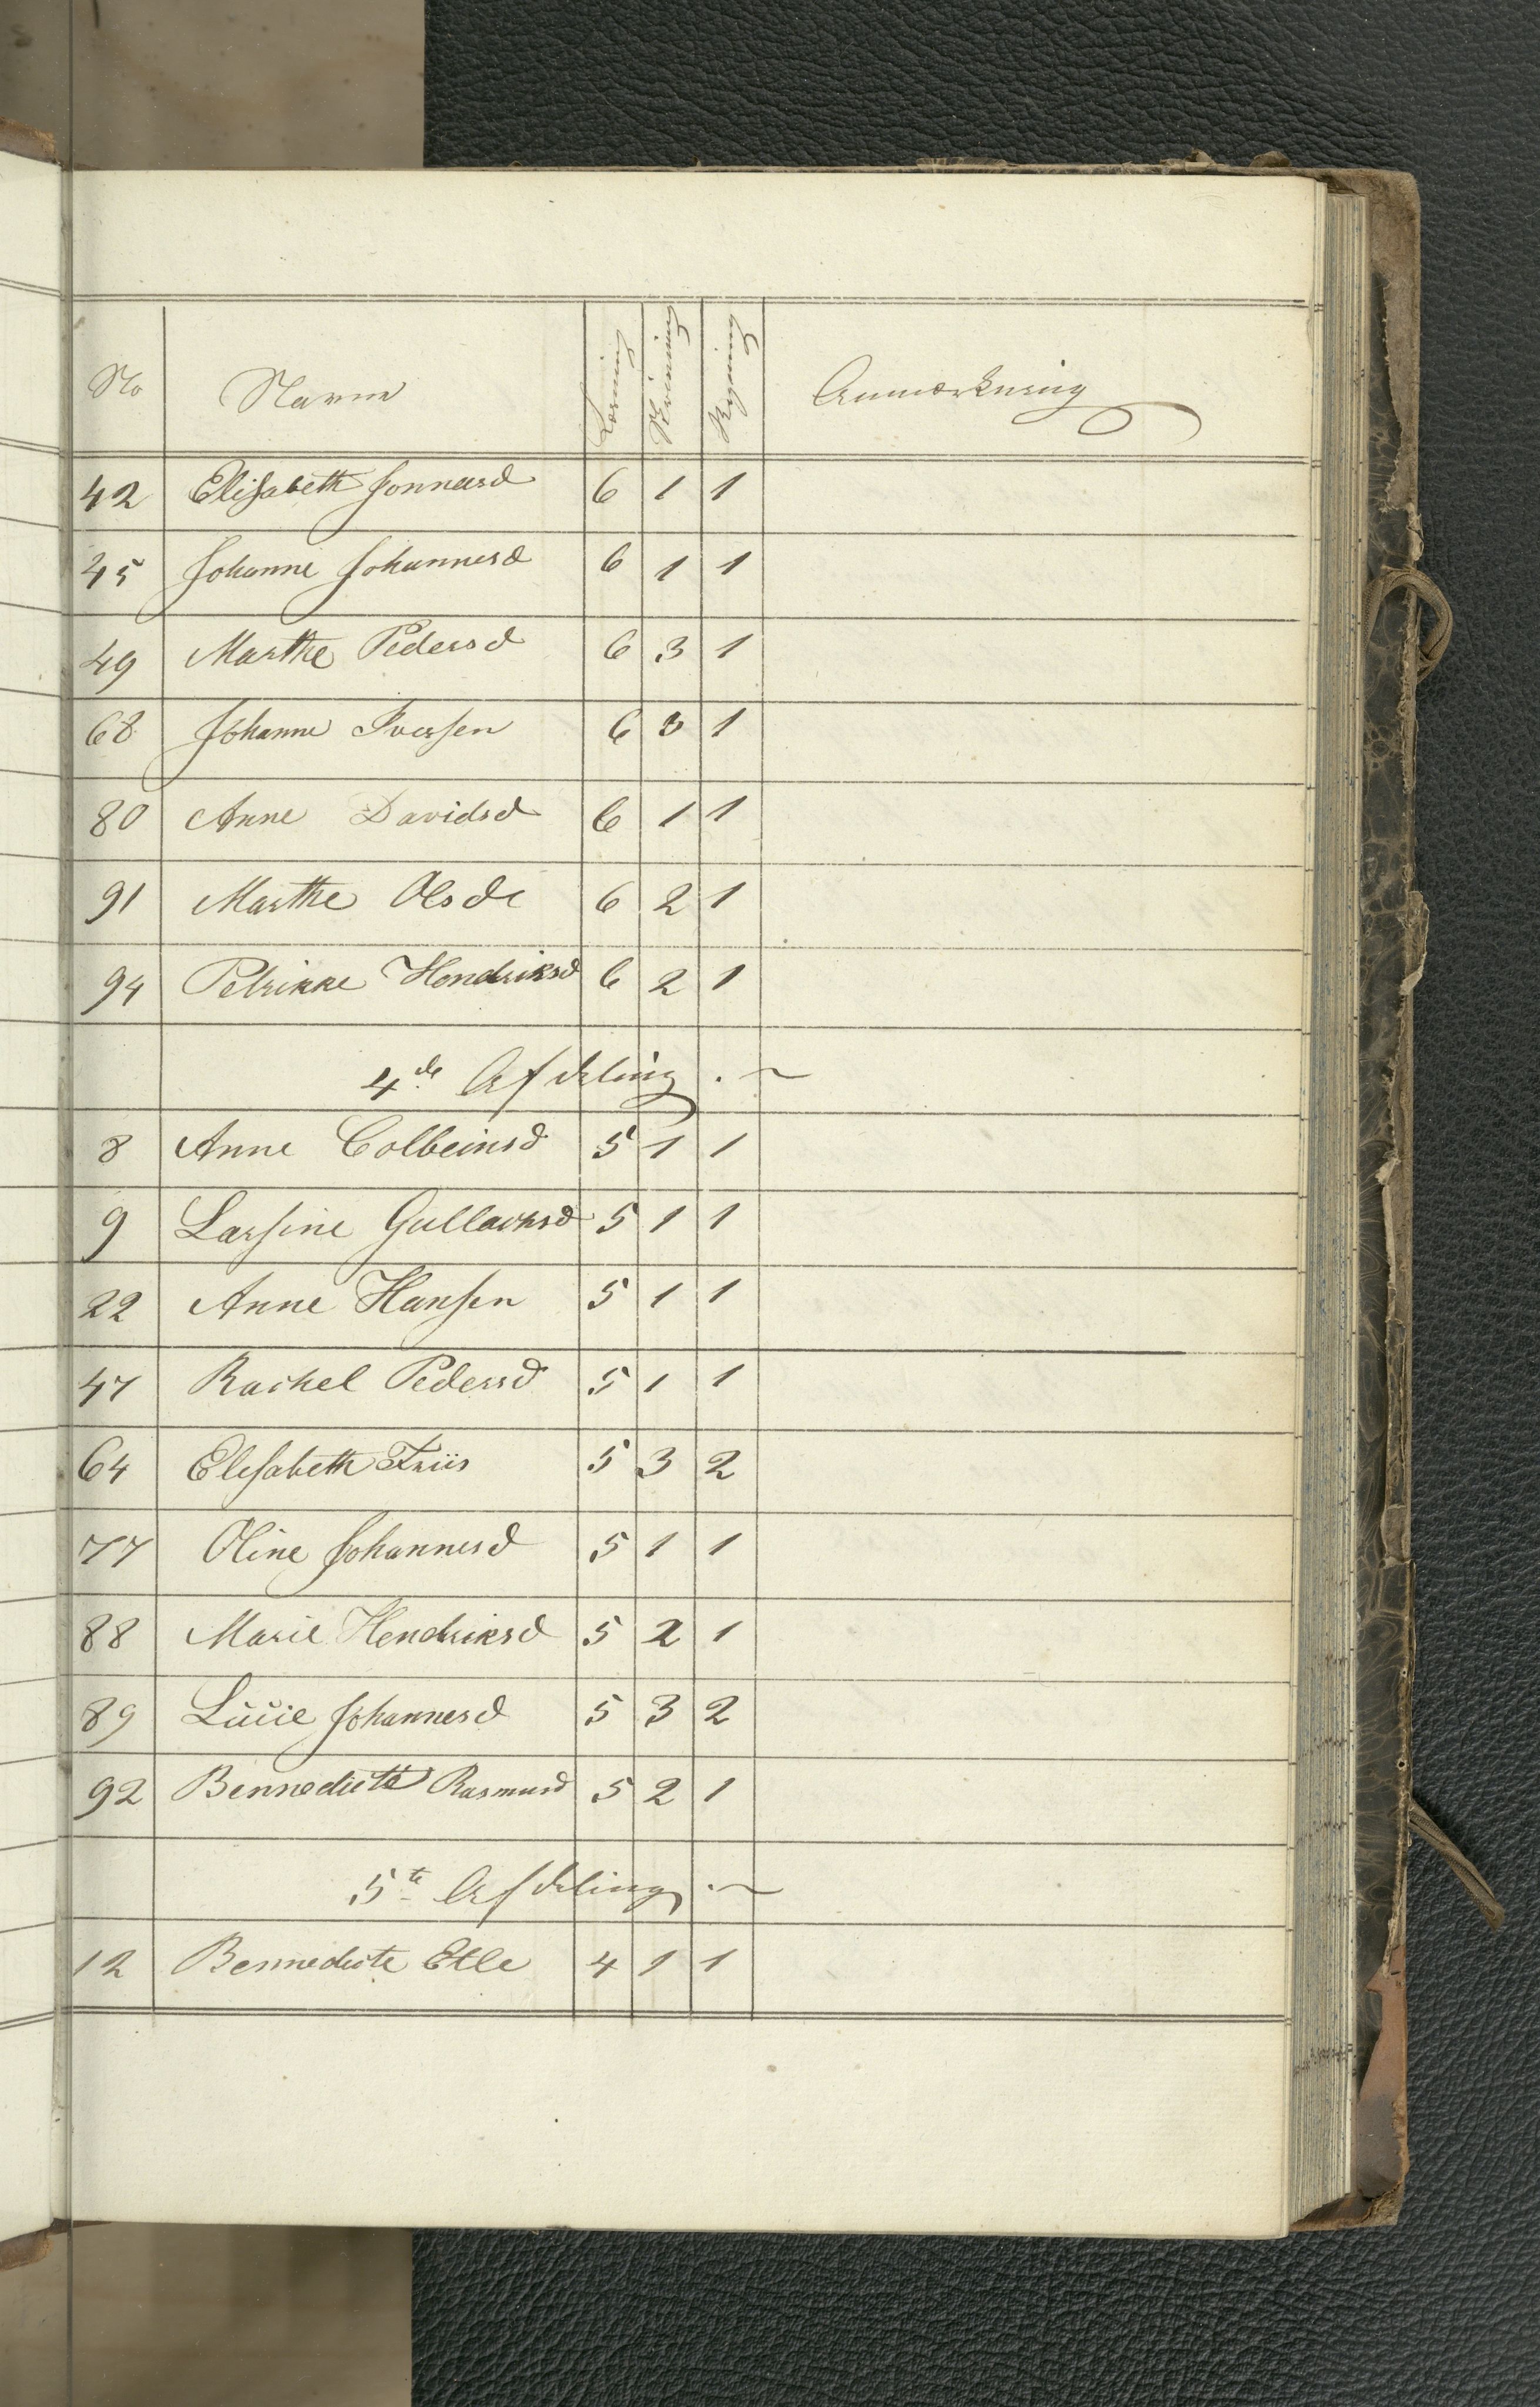 No Navne Læsning Skrivning Regning Anmærkning
42 Elisabeth Jonnasd 6 1 1
45 Johanne Johannesd 6 1 1
49 Marthe Pedersd 6 3 1
68 Johanne Iversen 6 3 1
80 Anne Davidsd 6 1 1
91 Marthe Olsde 6 2 1
94 Petrikke Hendriksd 6 2 1
4de Afdeling .~
8 Anne Colbeinsd 5 1 1
9 Larsine Gullacksd 5 1 1
22 Anne Hansen 5 1 1
47 Rachel Pedersd 5 1 1
64 Elesabeth Friis 5 3 2
77 Oline Johannesd 5 1 1
88 Marie Hendriksd 5 2 1
89 Lucie Johannesd 5 3 2
92 Bennedicte Rasmusd 5 2 1
5te Afdeling .~
12 Bennedicte Elle 4 1 1